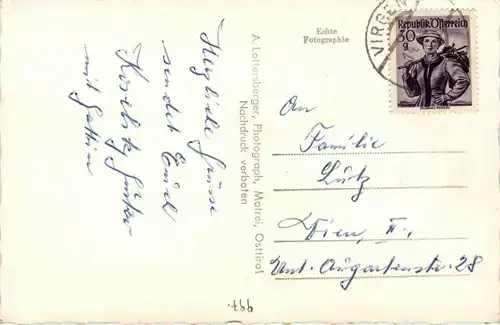 Herzliche Grüsse
sendet Euch
Gustav
mit Gattin
A. Lottersberger, Photograph, Matrei, Osttirol
Nachdruck verboten
Echte
Fotographie
VIRGEN
Republik Österreich
30
g
An
Familie
Lutz
Wien, II.,
Unt. Augartenstr. 28
997.